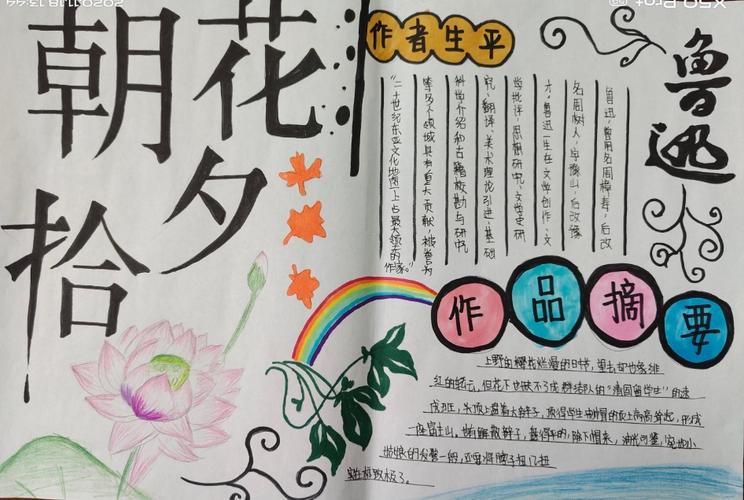 朝花夕拾
鲁迅
作者生平
鲁迅,曾用名周樟寿,后改
名周树人,字豫山,后改豫
才。鲁迅一生在文学创作、文
学批评、思想研究、文学史研
究、翻译、美术理论引进、基础
科学介绍和古籍校勘与研究
等多个领域具有重大贡献,被誉为
“二十世纪东亚文化地图上占最大领土的
作家。”
作品摘要
上野的樱花烂漫的时节,望去却也像绯
红的轻云,但花下也缺不了成群结队的“清国留学生”的速
成班,头顶上盘着大辫子,顶得学生制帽的顶上高高耸起,形成
一座富士山。也有解散辫子,盘得平的,除下帽来,油光可鉴,宛如小
姑娘的发髻一般,还要将脖子扭几扭
实在标致极了。